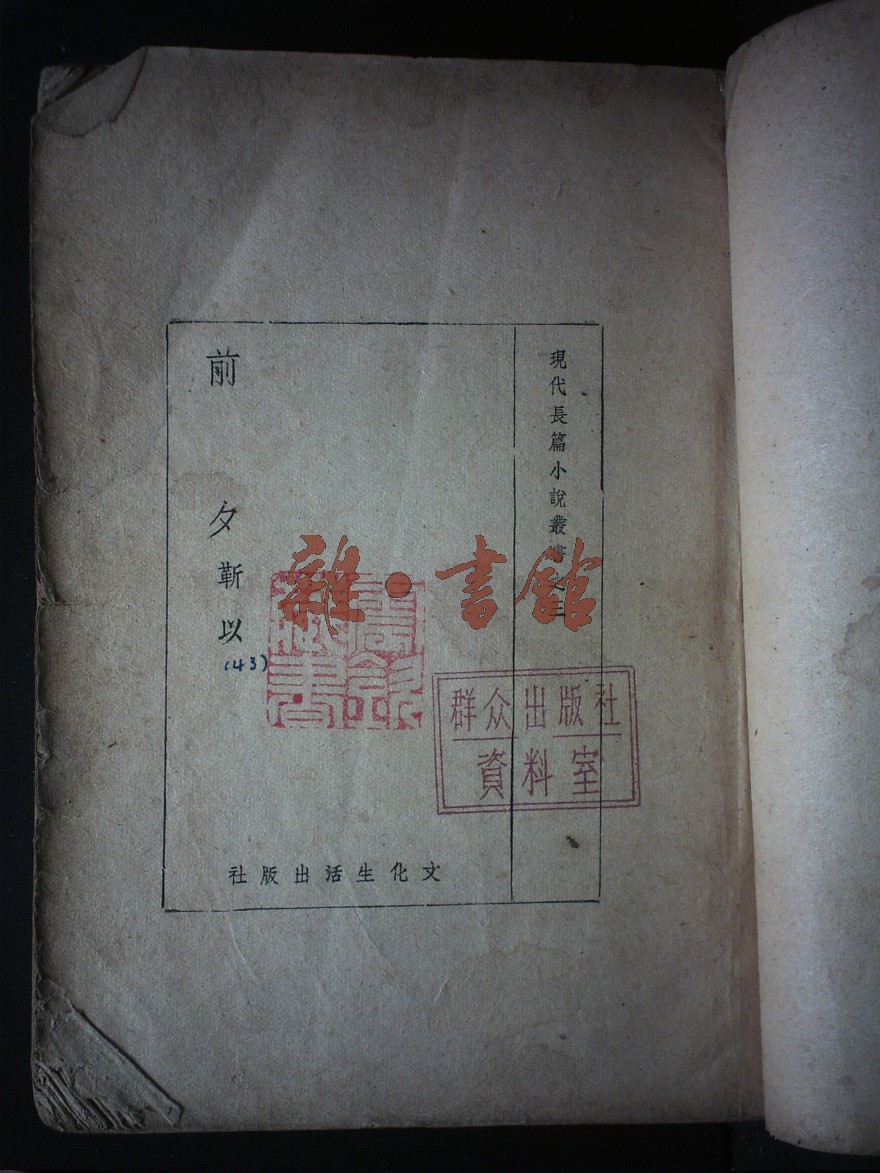 現代長篇小說叢書之三
前夕
靳以
(43)
雜·書館
群众出版社
資料室
文化生活出版社